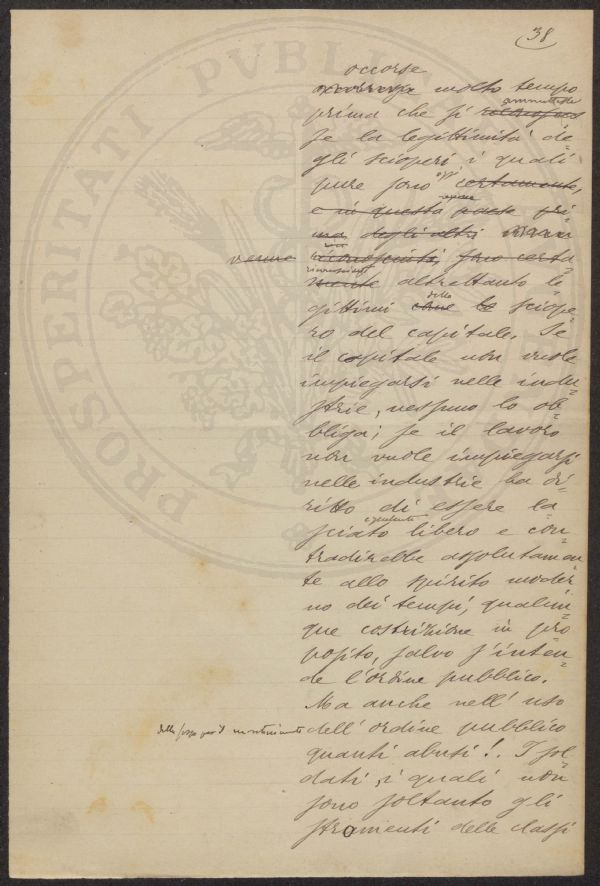 38
occorse
molto tempo
ammettesse
prima che si riconosces
se la legittimità de=
gli scioperi i quali
oggi
pure sono certamente,
e in questo paese pri=
ma degli altri
venne riconosciuti, sono certa
riconosciuti
mente altrettanto le=
dello
gittimi come lo sciope=
ro del capitale. Se
il capitale non vuole
impiegarsi nelle indu=
strie, nessuno lo ob=
bliga; se il lavoro
non vuole impiegarsi
nelle industrie ha di=
ritto di essere la=
sciato libero e con=
tradirebbe assolutamen=
te allo spirito moder=
no dei tempi, qualun=
que costrizione in pro=
posito, salvo s'inten=
de l'ordine pubblico.
Ma anche nell'uso
della forza per il mantenimento dell'ordine pubblico
quanti abusi! I sol=
dati, i quali non
sono soltanto gli
stromenti delle classi
PROSPERITATI PUBLICAE